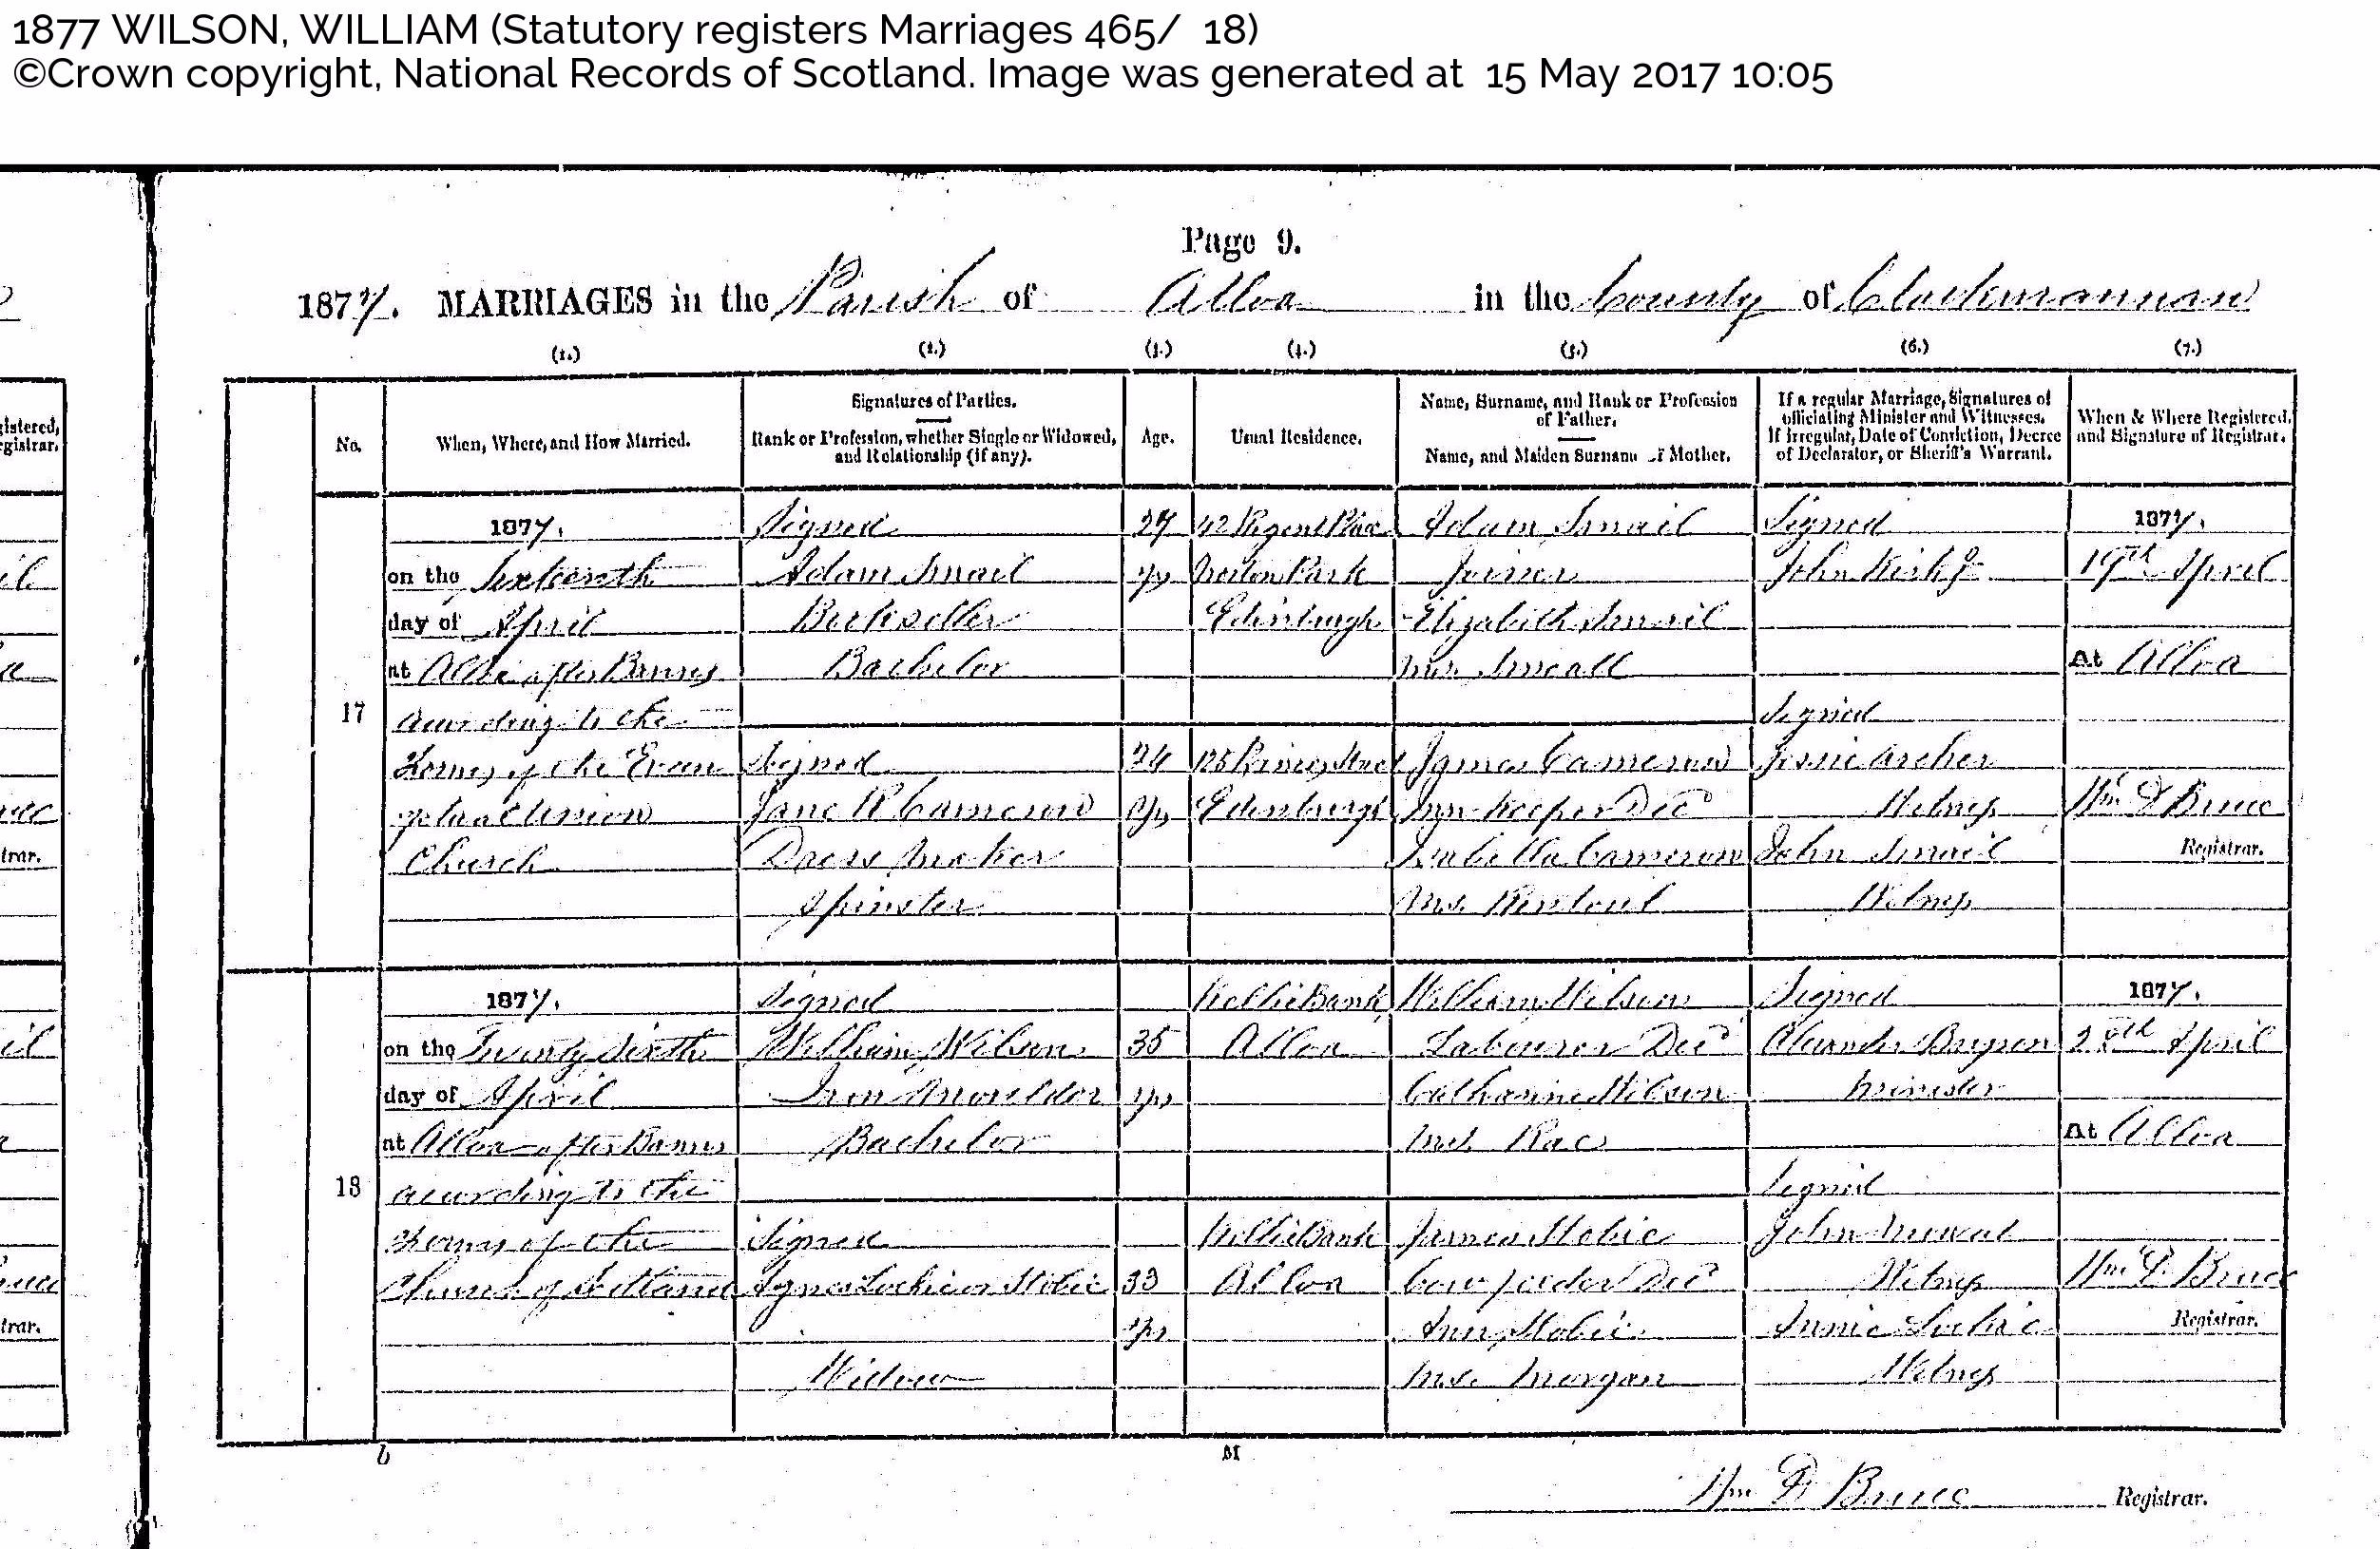 1877 WILSON, WILLIAM (Statutory registers Marriages 465/ 18)
©Crown copyright, National Records of Scotland. Image was generated at 15 May 2017 10:05
Page 9.
1877. MARRIAGES in the Parish of Alloa in the County of Clackmannan
(1.) (2.) (3.) (4.) (5.) (6.) (7.)
No.
When, Where, and How Married.
Signatures of Parties.
Rank or Profession, whether Single or Widowed,
and Relationship (if any).
Age.
Usual Residence.
Name, Surname, and Rank or Profession
of Father.
Name, and Maiden Surname of Mother.
If a regular Marriage, Signatures of
officiating Minister and Witnesses.
If irregular, Date of Conviction, Decree
of Declarator, or Sheriff's Warrant.
When & Where Registered,
and Signature of Registrar.
17
1877.
on the Sixteenth
day of April
at Alloa after Banns
according to the
Forms of the Evan
gelical Union
Church
Signed
Adam Smail
Bookseller
Bachelor
Signed
Jane R Cameron
Dress Maker
Spinster
27
yrs
24
yrs
42 Regent Place
Norton Park
Edinburgh
125 Princes Street
Edinburgh
Adam Smail
Joiner
Elizabeth Smail
M.S. Smeall
James Cameron
Inn-Keeper Decd
Isabella Cameron
M.S. Rintoul
Signed
John Kirk
Signed
Jessie Archer
Witness
John Smail
Witness
1877.
19th April
At Alloa
Wm D Bruce
Registrar.
18
1877.
on the Twenty Sixth
day of April
at Alloa after Banns
according to the
Forms of the
Church of Scotland
Signed
William Wilson
Iron Moulder
Bachelor
Signed
Agnes Lockie or Stobie
Widow
35
yrs
33
yrs
KellieBank
Alloa
KellieBank
Alloa
William Wilson
Labourer Decd
Catharine Wilson
M.S. Rae
James Stobie
Cowfeeder Decd
Ann Stobie
M.S. Morgan
Signed
Alexander Bryson
Minister
Signed
John Mowat
Witness
Annie Lockie
Witness
1877.
28th April
At Alloa
Wm D Bruce
Registrar.
M
Wm D Bruce Registrar.